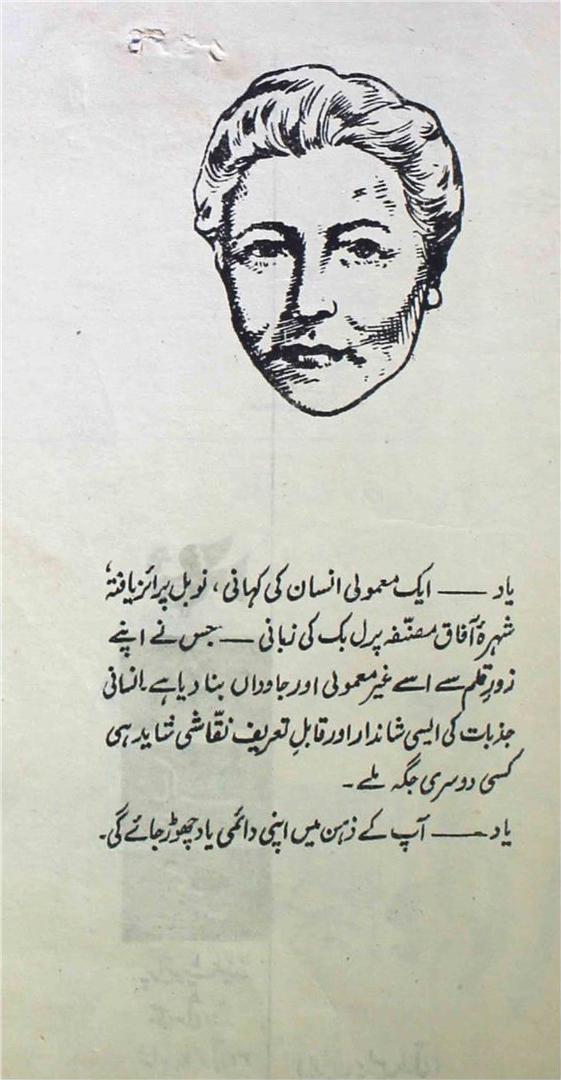 یاد ــــ ایک معمولی انسان کی کہانی، نوبل پرائز یافتہ،
شہرۂ آفاق مصنّفہ پرل بک کی زبانی ــــ جس نے اپنے
زورِ قلم سے اسے غیر معمولی اور جاوداں بنا دیا ہے۔ انسانی
جذبات کی ایسی شاندار اور قابلِ تعریف نقّاشی شاید ہی
کسی دوسری جگہ ملے۔
یاد ــــ آپ کے ذہن میں اپنی دائمی یاد چھوڑ جائے گی۔